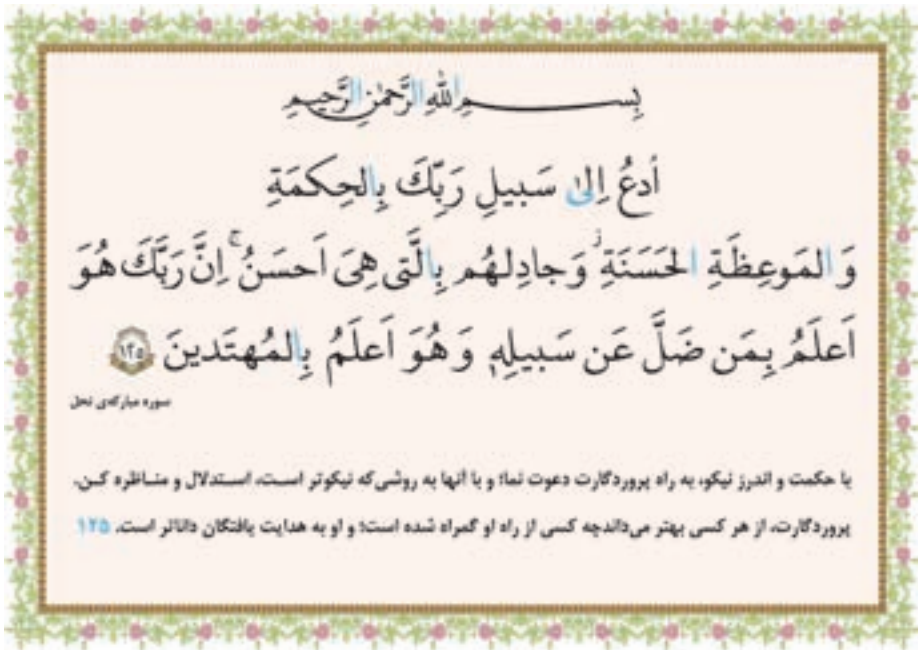 بِسمِ اللّٰهِ الرَّحمٰنِ الرَّحیمِ
اُدعُ اِلیٰ سَبیلِ رَبِّكَ بِالحِكمَةِ
وَ المَوعِظَةِ الحَسَنَةِ ۖ وَجادِلهُم بِالَّتی هِیَ اَحسَنُ ۚ اِنَّ رَبَّكَ هُوَ
اَعلَمُ بِمَن ضَلَّ عَن سَبیلِهٖ وَ هُوَ اَعلَمُ بِالمُهتَدینَ ۱۲۵
سوره مبارکه‌ی نحل
با حکمت و اندرز نیکو، به راه پروردگارت دعوت نما؛ و با آنها به روشی که نیکوتر است، استدلال و مناظره کن.
پروردگارت، از هر کسی بهتر می‌داندچه کسی از راه او گمراه شده است؛ و او به هدایت یافتگان داناتر است. ۱۲۵